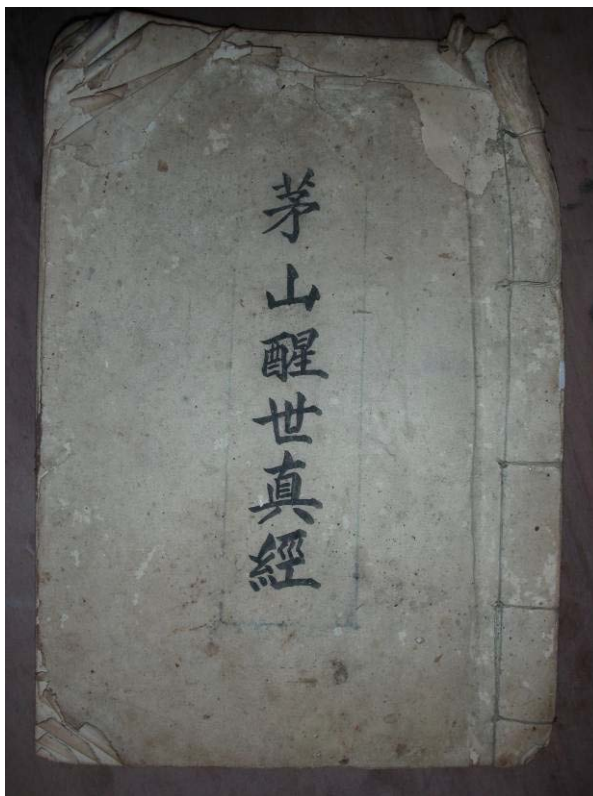 茅山醒世真經